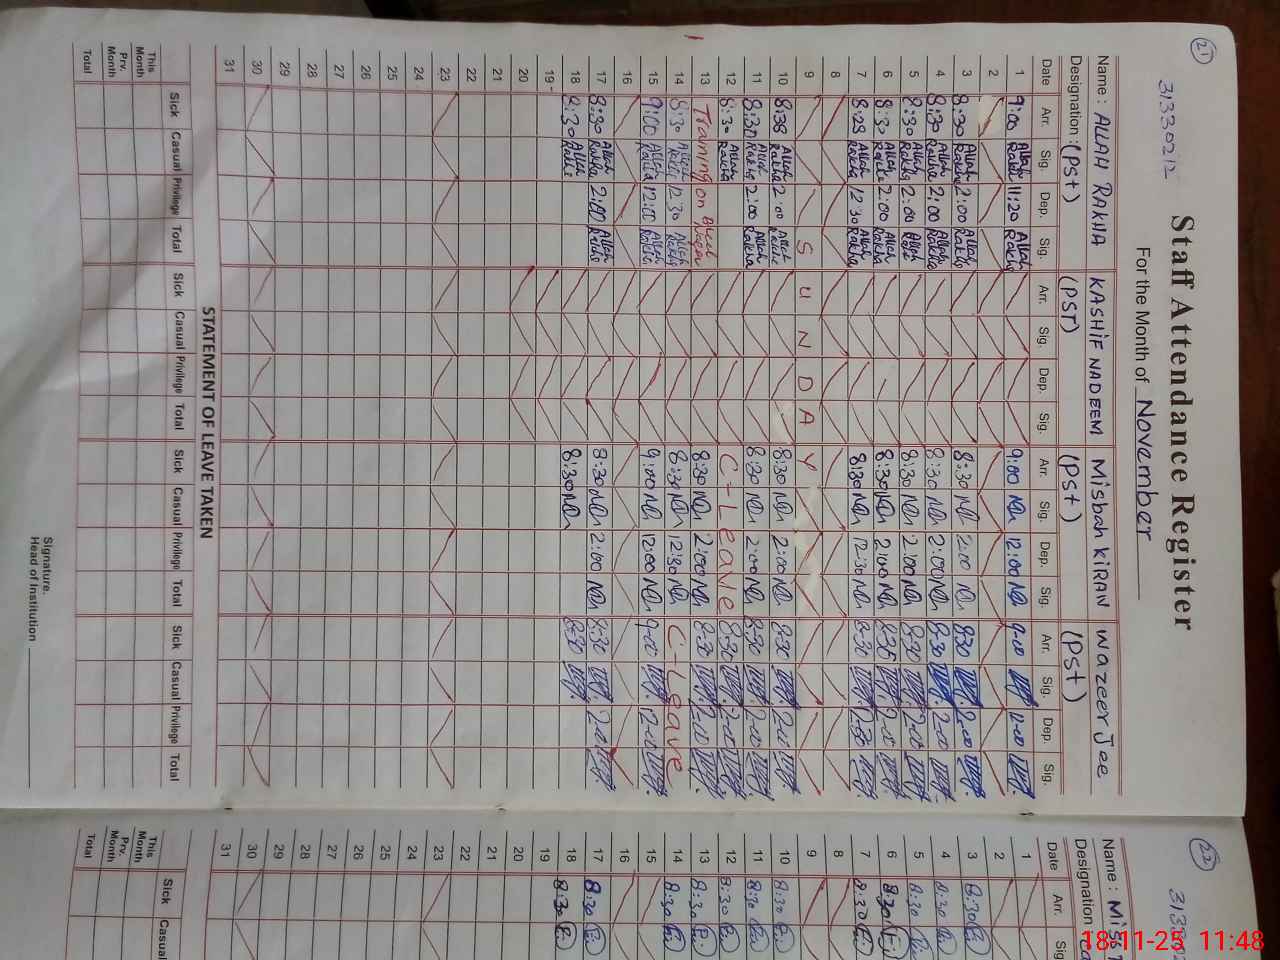 21
31330212
Staff Attendance Register
For the Month of November
Name : ALLAH RAKHA KASHIF NADEEM Misbah KIRAN Wazeer Jee
Designation : (PST) (PST) (PST) (PST)
Date Arr. Sig. Dep. Sig. Arr. Sig. Dep. Sig. Arr. Sig. Dep. Sig. Arr. Sig. Dep. Sig.
1 9:00 Allah Rakha 11:20 Allah Rakha 9:00 12:00 9-00 12-00
2
3 8:30 Allah Rakha 2:00 Allah Rakha 8:30 2:00 8:30 2-00
4 8:30 Allah Rakha 2:00 Allah Rakha 8:30 2:00 8:30 2-00
5 8:30 Allah Rakha 2:00 Allah Rakha 8:30 2:00 8:30 2-00
6 8:30 Allah Rakha 2:00 Allah Rakha 8:30 2:00 8:30 2-00
7 8:29 Allah Rakha 12:30 Allah Rakha 8:30 12:30 8-30
8
9 S U N D A Y
10 8:38 Allah Rakha 2:00 Allah Rakha 8:30 2:00 8:30 2-00
11 8:30 Allah Rakha 2:00 Allah Rakha 8:30 2:00 8:30 2-00
12 8:30 Allah Rakha C-Leave 8:30 2-00
13 Training on 8:30 2:00 8-30 2-00
14 8:30 Allah Rakha 12:30 Allah Rakha 8:30 12:30 C-Leave
15 9:00 Allah Rakha 12:00 Allah Rakha 9:00 12:00 9-00 12-00
16
17 8:30 Allah Rakha 2:00 Allah Rakha 8:30 2:00 8:30 2-00
18 8:30 Allah Rakha 8:30 8:30
19
20
21
22
23
24
25
26
27
28
29
30
31
STATEMENT OF LEAVE TAKEN
Sick Casual Privilege Total Sick Casual Privilege Total Sick Casual Privilege Total Sick Casual Privilege Total
This Month
Prv. Month
Total
Signature.
Head of Institution
22
Name :
Designation
Date Arr.
1
2
3 8:30
4 8:30
5 8:30
6 8:30
7 8:30
8
9
10 8:30
11 8:30
12 8:30
13 8:30
14 8:30
15
16
17 8:30
18 8:30
19
20
21
22
23
24
25
26
27
28
29
30
31
Sick Casual
This Month
Prv. Month
Total
18-11-25 11:48